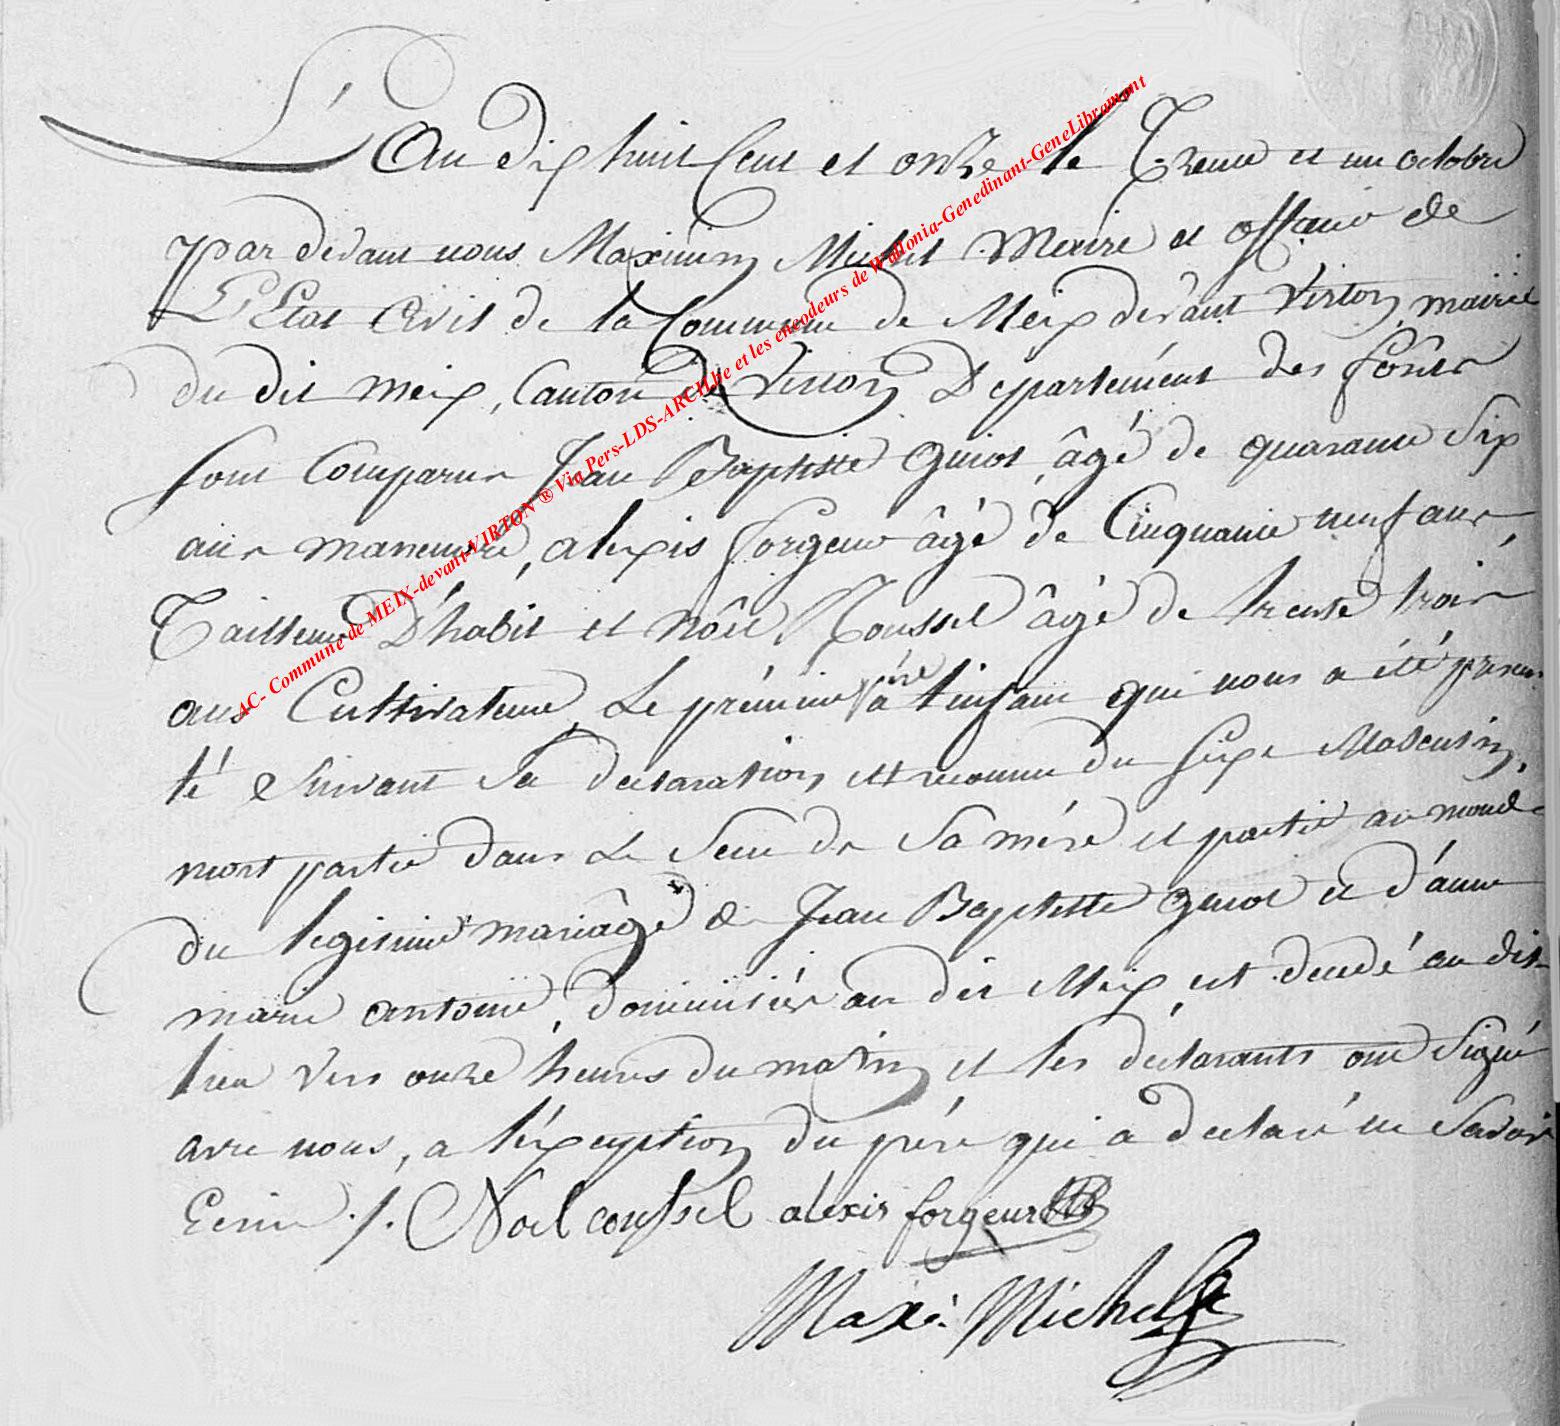 L'An dix huit Cent et onze le Trente et un octobre
par devant nous Maximin Michel Maire et officier de
L'Etat Civil de la Commune de Meix devant Virton, mairie
du dit meix, Canton de Virton Département des forêts
sont Comparus Jean Baptiste Guiot, âgé de quarante Six
ans manœuvre, alexis forgeur âgé de Cinquante neuf ans,
Tailleur D'habit et Nôel Coussel âgé de trente trois
ans Cultivateur, Le prémier père à l'enfant qui nous a été présen
té & Suivant Sa déclaration et reconnu du Sexe Masculin,
mort partie dans Le Sein de Sa mère et partie au monde
du légitime mariâge de Jean Baptiste guiot et d'anne
marie antoine, domiciliés au dit Meix, est décédé au dit
lieu vers onze heures du matin et les déclarants ont Signé
avec nous, a l'éxception du père qui a déclaré ne Savoir
Ecrire ./. Noel coussel alexis forgeur
Maxi: Michel
AC- Commune de MEIX-devant-VIRTON ® Via Pers-LDS-ARCH.be et les encodeurs de Wallonia-Genedinant-GeneLibramont